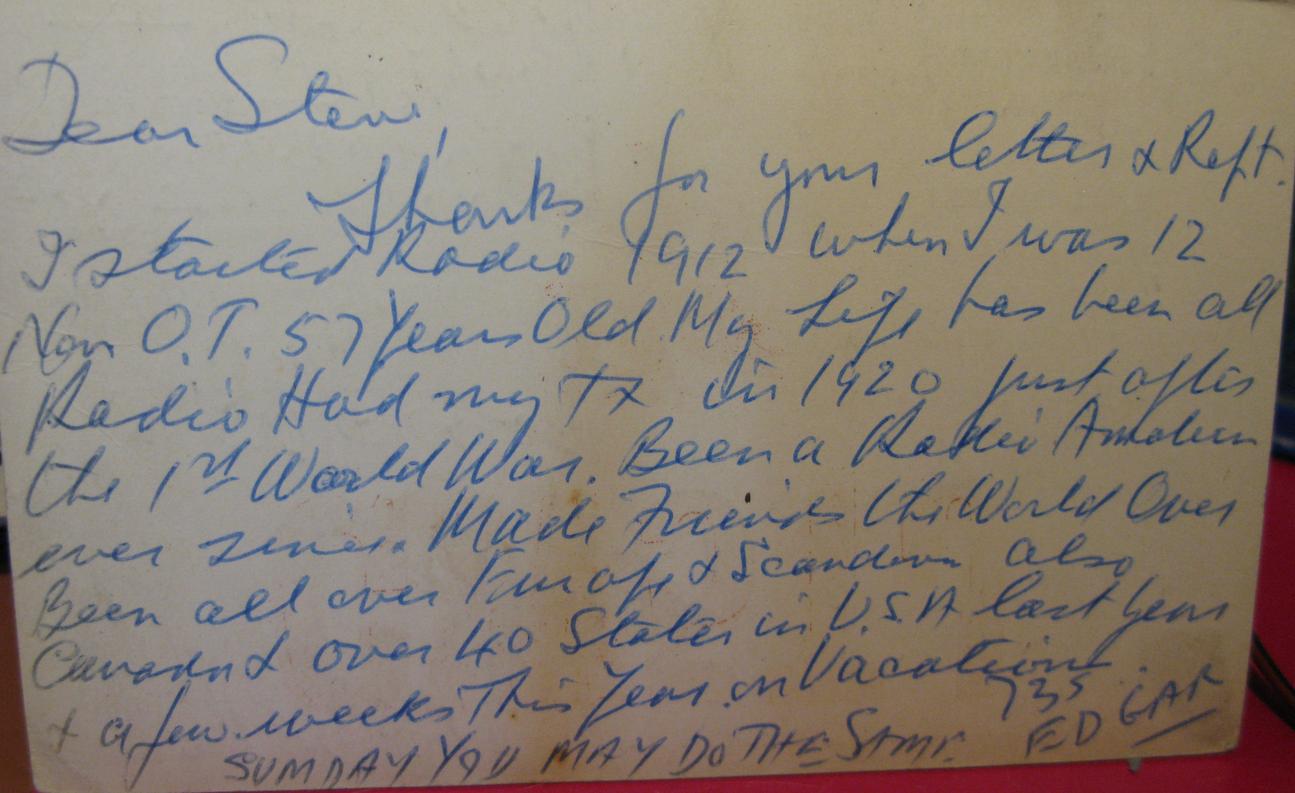 Dear Steve,
Thanks for your letter & Rept.
I started Radio 1912 when I was 12
Now O.T. 57 Years Old. My Life has been all
Radio Had my TX in 1920 just after
the 1st World War. Been a Radio Amateur
ever since. Made Friends the World Over
Been all over Europe & Scandinavia also
Canada & over 40 States in U.S.A last year
& a few weeks This Year on Vacation.
73s
SUMDAY YOU MAY DO THE SAME. EDGAR